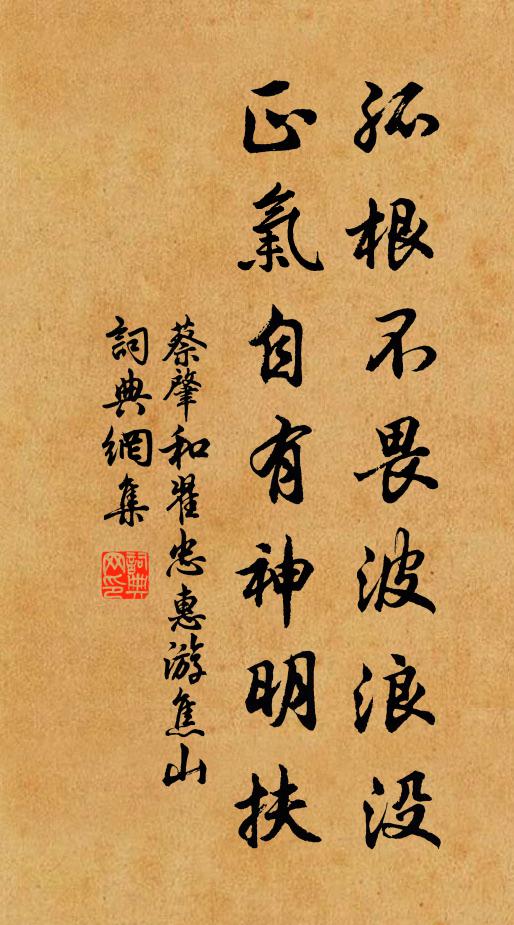 孤根不畏波浪没
正氣自有神明扶
蔡肇和翟忠惠游焦山
詞典網集
詞典網印